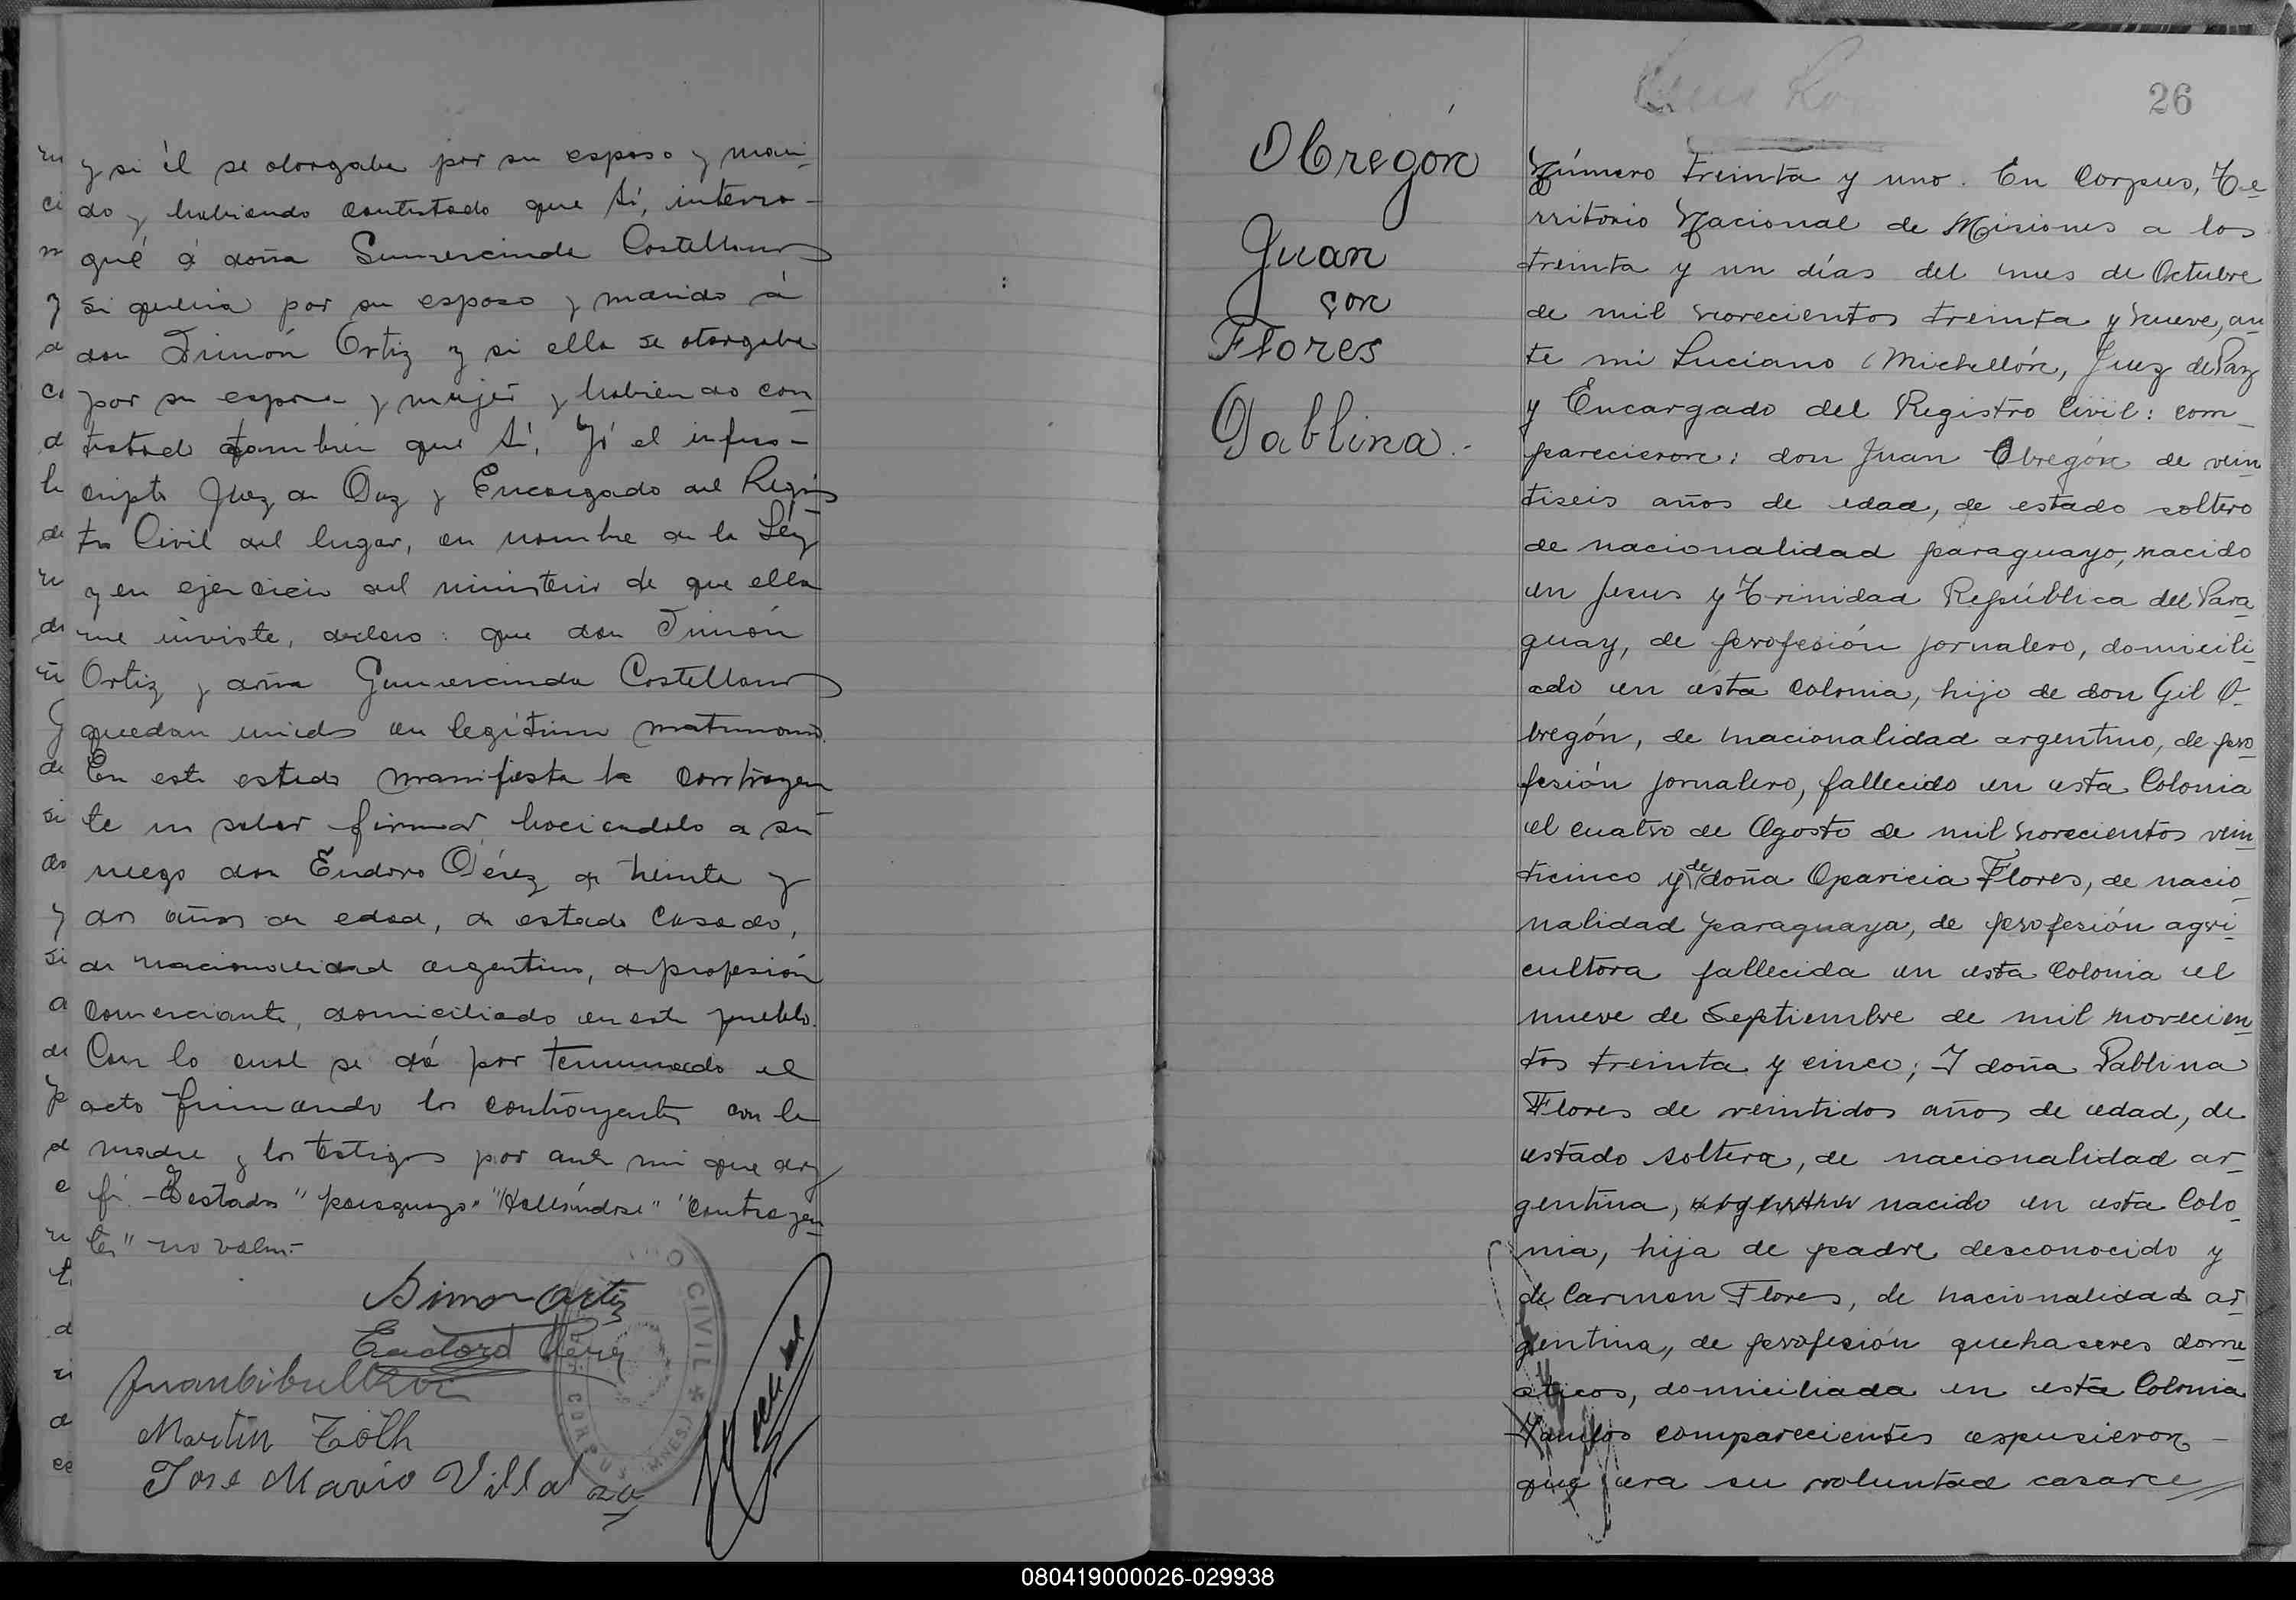 y si él se otorgaba por su esposo y mari-
do y habiendo contestado que sí, interro-
gué á doña Gumercinda Castellano
si quería por su esposo y marido á
don Simón Ortiz y si ella se otorgaba
por su esposa y mujer y habiendo con-
testado también que sí, Yó el infras-
cripto Juez de Paz y Encargado del Regis
tro Civil del lugar, en nombre de la Ley
y en ejercicio del ministerio de que ella
me inviste, declaro: que don Simón
Ortiz y doña Gumercinda Castellano
quedan unidos en legítimo matrimonio.
En este estado manifiesta la contrayen
te no saber firmar haciendolo a su
ruego don Eudoro Pérez de treinta y
dos años de edad, de estado casado,
de nacionalidad argentino, de profesión
comerciante, domiciliado en este pueblo.
Con lo cual se dá por terminado el
acto firmando los contrayentes con la
madre y los testigos por ante mi que doy
fé.-Testados "paraguayo" "contrayen
tes" no valen.-
Simon Ortiz
Eudoro Pérez
Martin Tóth
Jose Mario Villalva
CIVIL *
CORPUS (MNES.)
26
Obregón
Juan
con
Flores
Pablina.-
Número treinta y uno. En Corpus, Te-
rritorio Nacional de Misiones a los
treinta y un días del mes de Octubre
de mil novecientos treinta y nueve, an
te mi Luciano Michellón, Juez de Paz
y Encargado del Registro Civil: com-
parecieron: don Juan Obregón de vein
tiseis años de edad, de estado soltero
de nacionalidad paraguayo, nacido
en Jesus y Trinidad República del Para
guay, de profesión jornalero, domicili-
ado en esta Colonia, hijo de don Gil O-
bregón, de nacionalidad argentino, de pro
fesión jornalero, fallecido en esta Colonia
el cuatro de Agosto de mil novecientos vein
ticinco y de doña Aparicia Flores, de nacio
nalidad paraguaya, de profesión agri-
cultora fallecida en esta Colonia el
nueve de Septiembre de mil novecien
tos treinta y cinco; Y doña Pablina
Flores de veintidos años de edad, de
estado soltera, de nacionalidad ar-
gentina, nacido en esta Colo
nia, hija de padre desconocido y
de Carmen Flores, de nacionalidad ar
gentina, de profesión quehaseres dome
sticos, domiciliada en esta Colonia
Y ambos comparecientes espusieron-
que era su voluntad casarce
080419000026-029938